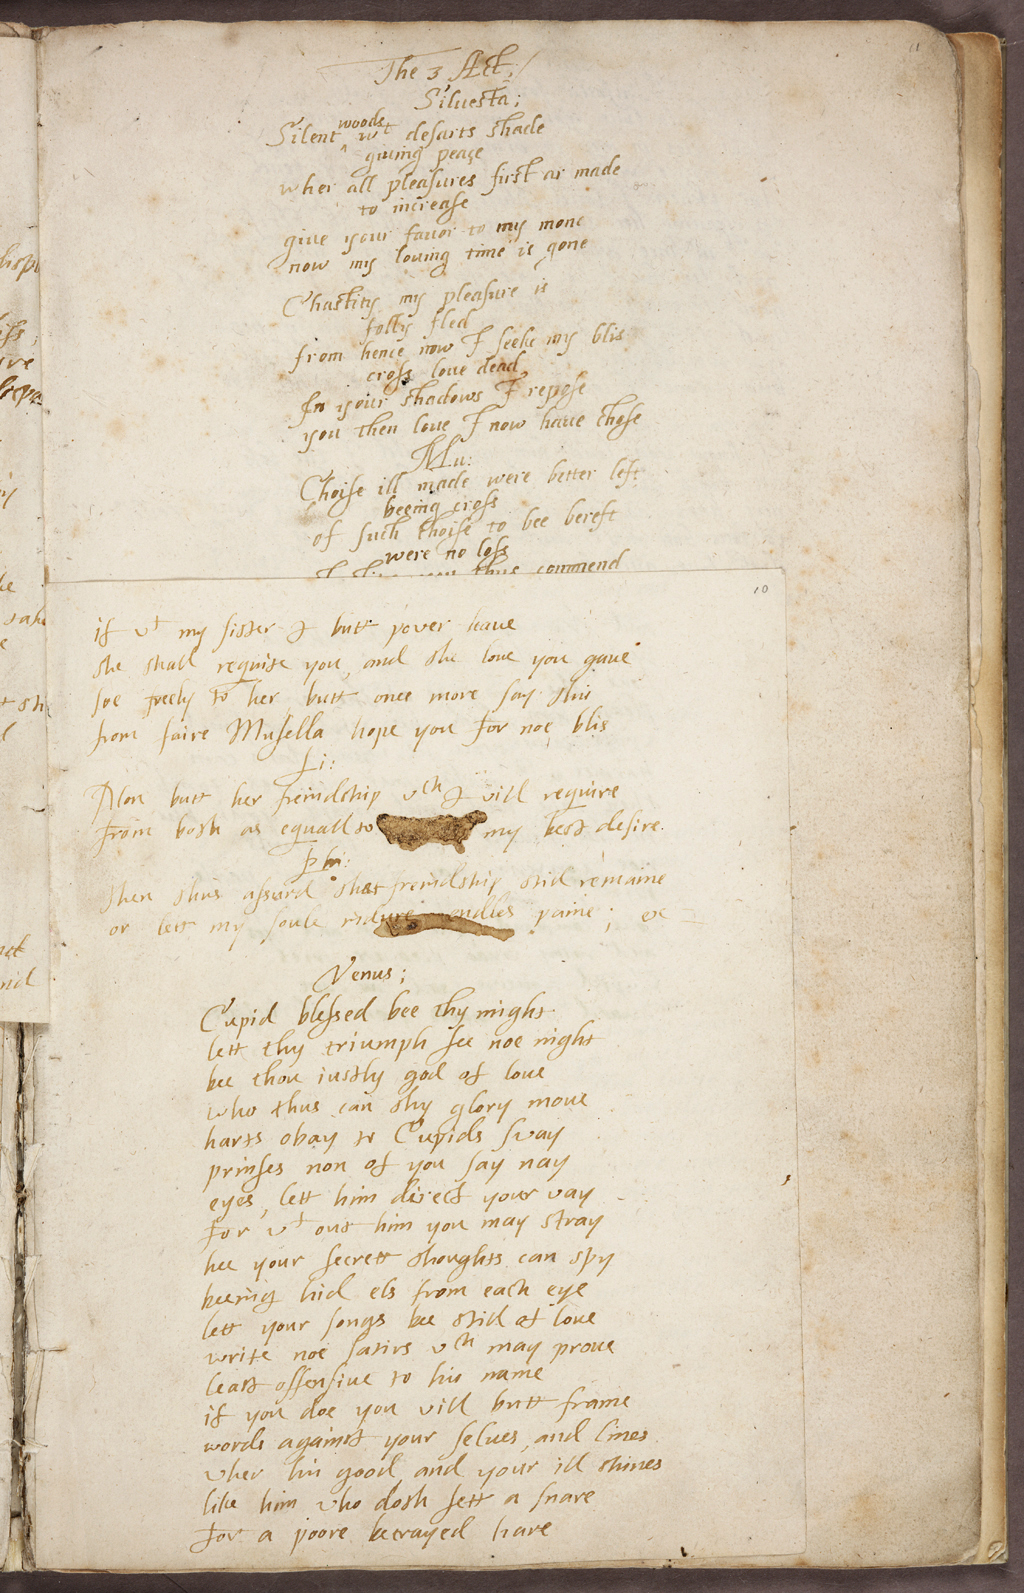 11
The 3 Act;/
Siluesta;
Silent ^woods wt desarts shade
giuing peace
wher all pleasures first ar made
to increase
giue your fauor to my mone
now my louing time is gone
Chastity my pleasure is
folly fled
from hence now I seeke my blis
cross loue dead
In your shadows I repose
you then loue I now haue chose
Mu:
Choise ill made were better left
beeing cross
of such choise to bee bereft
were no loss
thus commend
10
if wt my sister I butt power haue
she shall requite you, and the loue you gaue
soe freely to her, butt once more say this
from faire Musella hope you for noe blis
Li:
Non butt her freindship wch I will require
from both as equall to my best desire.
Phi:
then thus assurd that freindship still remaine
or lett my soule indure endles paine; ex
Venus;
Cupid blessed bee thy might
lett thy triumph see noe night
bee thou iustly god of loue
who thus can thy glory moue
harts obay to Cupids sway
prinses non of you say nay
eyes, lett him direct your way
for wt out him you may stray
hee your secrett thoughts can spy
beeing hid els from each eye
lett your songs bee still of loue
write noe satirs wch may proue
least offensiue to his name
if you doe you will butt frame
words against your selues, and lines
wher his good, and your ill shines
like him who doth sett a snare
for a poore betrayed hare